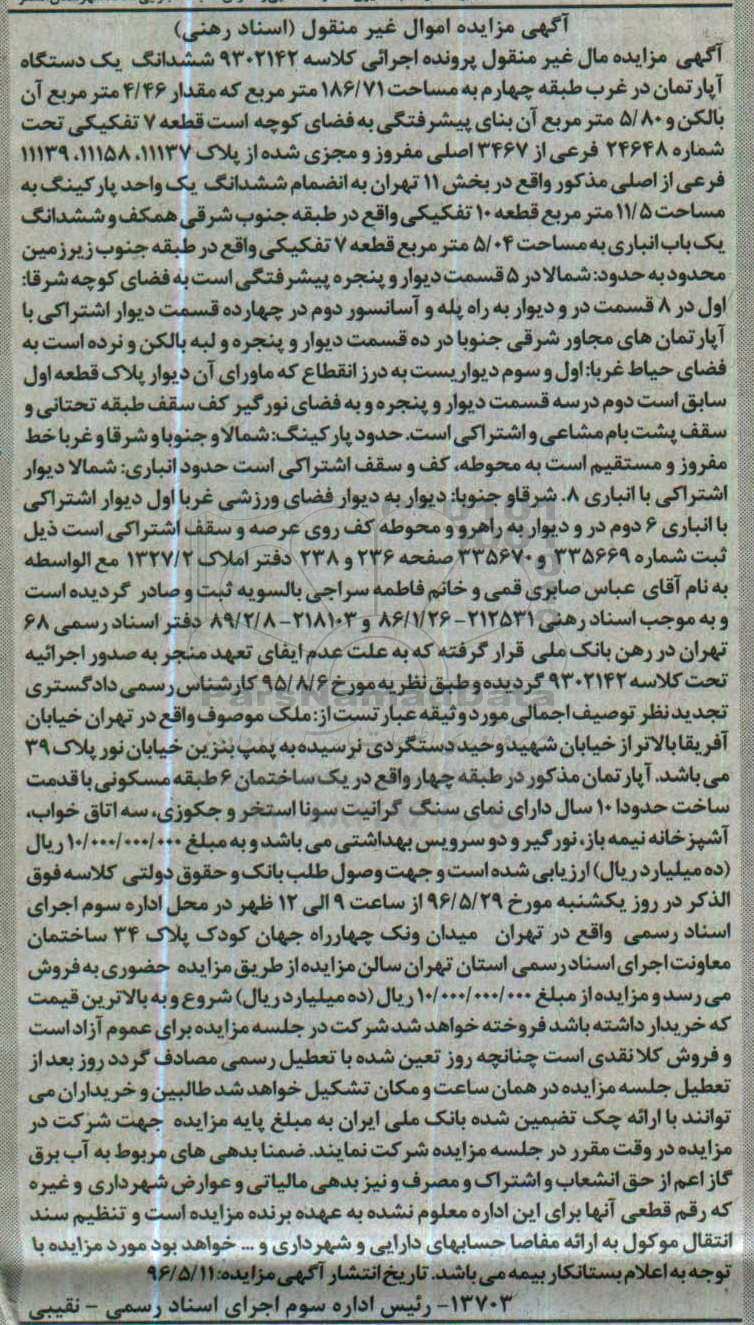 آگهی مزایده اموال غیر منقول (اسناد رهنی)
آگهی مزایده مال غیر منقول پرونده اجرائی کلاسه ۹۳۰۲۱۴۲ ششدانگ یک دستگاه
آپارتمان در غرب طبقه چهارم به مساحت ۱۸۶/۷۱ متر مربع که مقدار ۴/۴۶ متر مربع آن
بالکن و ۵/۸۰ متر مربع آن بنای پیشرفتگی به فضای کوچه است قطعه ۷ تفکیکی تحت
شماره ۲۴۶۴۸ فرعی از ۳۴۶۷ اصلی مفروز و مجزی شده از پلاک ۱۱۱۳۷، ۱۱۱۵۸، ۱۱۱۳۹
فرعی از اصلی مذکور واقع در بخش ۱۱ تهران به انضمام ششدانگ یک واحد پارکینگ به
مساحت ۱۱/۵ متر مربع قطعه ۱۰ تفکیکی واقع در طبقه جنوب شرقی همکف و ششدانگ
یک باب انباری به مساحت ۵/۰۴ متر مربع قطعه ۷ تفکیکی واقع در طبقه جنوب زیرزمین
محدود به حدود: شمالا در ۵ قسمت دیوار و پنجره پیشرفتگی است به فضای کوچه شرقا:
اول در ۸ قسمت در و دیوار به راه پله و آسانسور دوم در چهارده قسمت دیوار اشتراکی با
آپارتمان های مجاور شرقی جنوبا در ده قسمت دیوار و پنجره و لبه بالکن و نرده است به
فضای حیاط غربا: اول و سوم دیواریست به درز انقطاع که ماورای آن دیوار پلاک قطعه اول
سابق است دوم درسه قسمت دیوار و پنجره و به فضای نورگیر کف سقف طبقه تحتانی و
سقف پشت بام مشاعی و اشتراکی است. حدود پارکینگ: شمالا و جنوبا و شرقا و غربا خط
مفروز و مستقیم است به محوطه، کف و سقف اشتراکی است حدود انباری: شمالا دیوار
اشتراکی با انباری ۸. شرقاو جنوبا: دیوار به دیوار فضای ورزشی غربا اول دیوار اشتراکی
با انباری ۶ دوم در و دیوار به راهرو و محوطه کف روی عرصه و سقف اشتراکی است ذیل
ثبت شماره ۳۳۵۶۶۹ و ۳۳۵۶۷۰ صفحه ۲۳۶ و ۲۳۸ دفتر املاک ۱۳۲۷/۲ مع الواسطه
به نام آقای عباس صابری قمی و خانم فاطمه سراجی بالسویه ثبت و صادر گردیده است
و به موجب اسناد رهنی ۲۱۲۵۳۱-۸۶/۱/۲۶ و ۲۱۸۱۰۳-۸۹/۲/۸ دفتر اسناد رسمی ۶۸
تهران در رهن بانک ملی قرار گرفته که به علت عدم ایفای تعهد منجر به صدور اجرائیه
تحت کلاسه ۹۳۰۲۱۴۲ گردیده و طبق نظریه مورخ ۹۵/۸/۶ کارشناس رسمی دادگستری
تجدید نظر توصیف اجمالی مورد وثیقه عبارتست از: ملک موصوف واقع در تهران خیابان
آفریقا بالاتر از خیابان شهید وحید دستگردی نرسیده به پمپ بنزین خیابان نور پلاک ۳۹
می باشد. آپارتمان مذکور در طبقه چهار واقع در یک ساختمان ۶ طبقه مسکونی با قدمت
ساخت حدودا ۱۰ سال دارای نمای سنگ گرانیت سونا استخر و جکوزی، سه اتاق خواب،
آشپزخانه نیمه باز، نورگیر و دو سرویس بهداشتی می باشد و به مبلغ ۱۰/۰۰۰/۰۰۰/۰۰۰ ریال
(ده میلیارد ریال) ارزیابی شده است و جهت وصول طلب بانک و حقوق دولتی کلاسه فوق
الذکر در روز یکشنبه مورخ ۹۶/۵/۲۹ از ساعت ۹ الی ۱۲ ظهر در محل اداره سوم اجرای
اسناد رسمی واقع در تهران میدان ونک چهارراه جهان کودک پلاک ۳۴ ساختمان
معاونت اجرای اسناد رسمی استان تهران سالن مزایده از طریق مزایده حضوری به فروش
می رسد و مزایده از مبلغ ۱۰/۰۰۰/۰۰۰/۰۰۰ ریال (ده میلیارد ریال) شروع و به بالاترین قیمت
که خریدار داشته باشد فروخته خواهد شد شرکت در جلسه مزایده برای عموم آزاد است
و فروش کلا نقدی است چنانچه روز تعین شده با تعطیل رسمی مصادف گردد روز بعد از
تعطیل جلسه مزایده در همان ساعت و مکان تشکیل خواهد شد طالبین و خریداران می
توانند با ارائه چک تضمین شده بانک ملی ایران به مبلغ پایه مزایده جهت شرکت در
مزایده در وقت مقرر در جلسه مزایده شرکت نمایند. ضمنا بدهی های مربوط به آب برق
گاز اعم از حق انشعاب و اشتراک و مصرف و نیز بدهی مالیاتی و عوارض شهرداری و غیره
که رقم قطعی آنها برای این اداره معلوم نشده به عهده برنده مزایده است و تنظیم سند
انتقال موکول به ارائه مفاصا حسابهای دارایی و شهرداری و ... خواهد بود مورد مزایده با
توجه به اعلام بستانکار بیمه می باشد. تاریخ انتشار آگهی مزایده: ۹۶/۵/۱۱
۱۳۷۰۳- رئیس اداره سوم اجرای اسناد رسمی - نقیبی